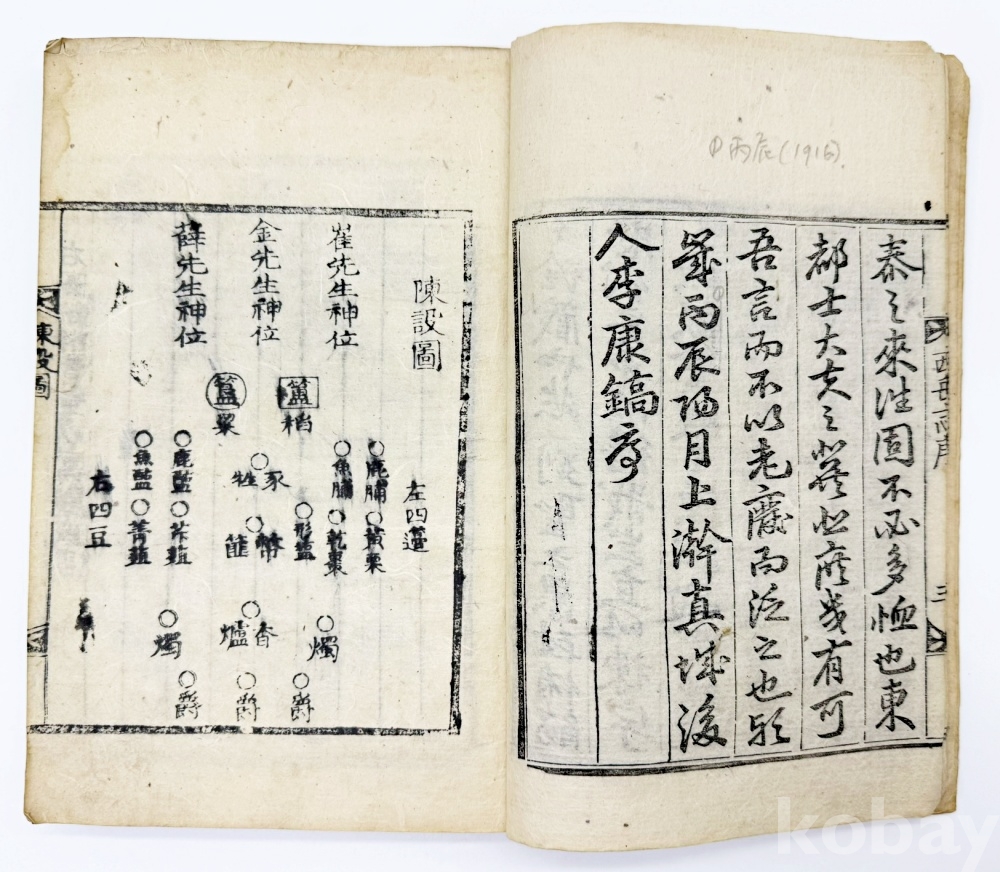 丙辰(1916)
西岳志序 三
泰之來往固不必多恤也東
都士大夫之庶幾有可
吾言而不以老廢而泛之也歟
歲丙辰陽月上澣真城後
人李康鎬序
陳設圖
崔先生神位
金先生神位
薛先生神位
左四籩
○鹿脯○黃栗
○魚脯○乾棗
○形鹽
簠稻
簋粱
○豕牲
○幣篚
○鹿醢○芹菹
○魚醢○菁菹
右四豆
○燭
○香爐
○燭
○爵
○爵
○爵
陳設圖
kobay